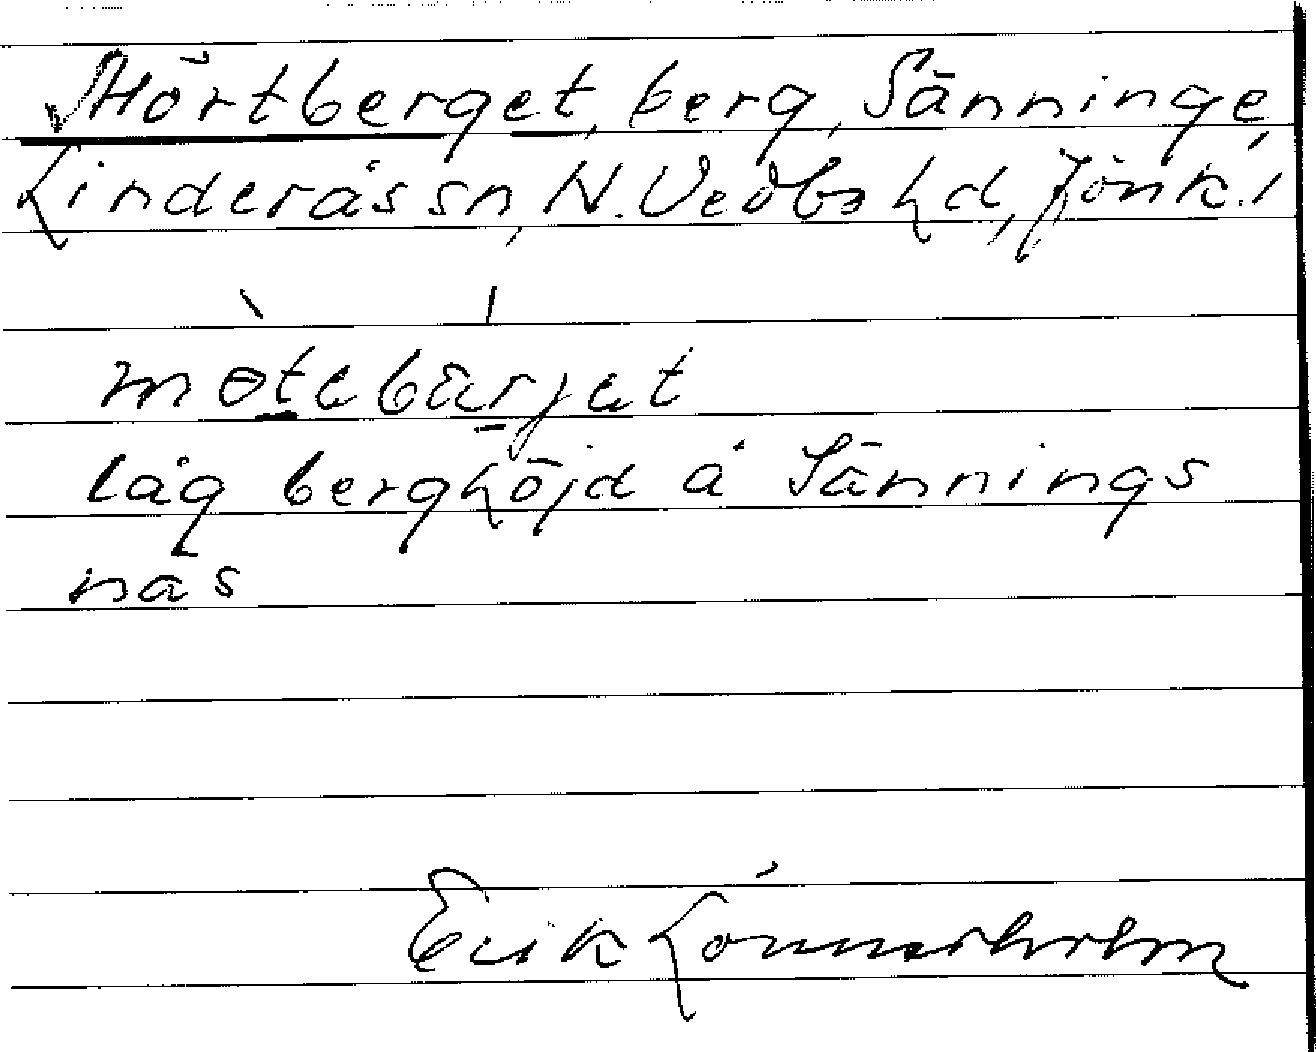 Mörtberget, berg, Sänninge,
Linderås sn, N. Vedbo hd, Jönk. l
motebärjet
låg berghöjd å Sännings
näs
Erik Lönnerholm